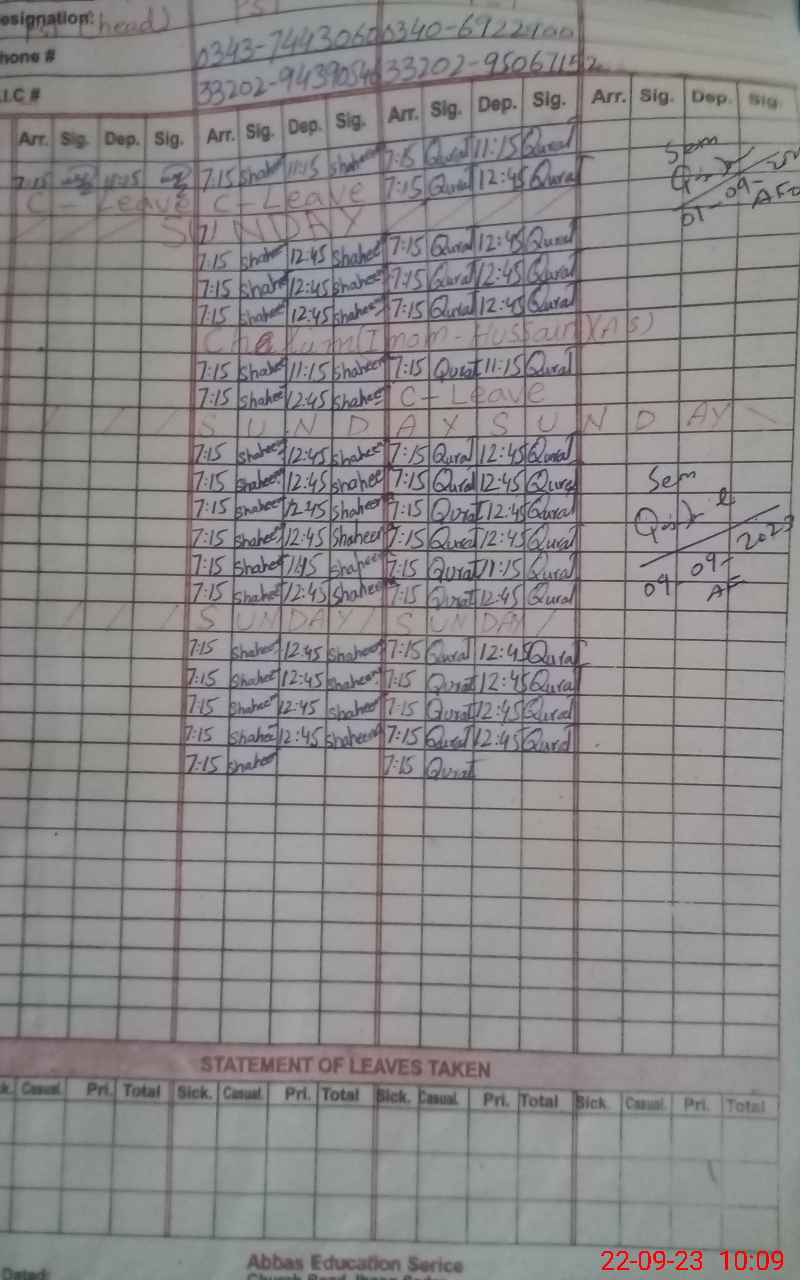 esignation: (head) PST
hone # 0343-7443060 0340-6922400
.I.C # 33202-9439054 33202-9506715
Arr. Sig. Dep. Sig. Arr. Sig. Dep. Sig. Arr. Dep. Sig. Arr. Sig. Dep. Sig.
7:15 11:15 7:15 Shaheen 11:15 Shaheen 7:15 Qurat 11:15 Qurat Sem
C- Leave C-Leave 7:15 Qurat 12:45 Qurat
SUNDAY 01-09- AF
7:15 Shaheen 12:45 Shaheen 7:15 Qurat 12:45 Qurat
7:15 Shaheen 12:45 Shaheen 7:15 Qurat 12:45 Qurat
7:15 Shaheen 12:45 Shaheen 7:15 Qurat 12:45 Qurat
Chelum (Imam-Hussain) (AS)
7:15 Shaheen 11:15 Shaheen 7:15 Qurat 11:15 Qurat
7:15 Shaheen 12:45 Shaheen C-Leave
SUNDAY SUNDAY
7:15 Shaheen 12:45 Shaheen 7:15 Qurat 12:45 Qurat
7:15 Shaheen 12:45 Shaheen 7:15 Qurat 12:45 Qurat Sem
7:15 Shaheen 12:45 Shaheen 7:15 Qurat 12:45 Qurat
7:15 Shaheen 12:45 Shaheen 7:15 Qurat 12:45 Qurat
7:15 Shaheen 11:45 Shaheen 7:15 Qurat 11:15 Qurat
7:15 Shaheen 12:45 Shaheen 7:15 Qurat 12:45 Qurat 09-09-2023 AF
SUNDAY SUNDAY
7:15 Shaheen 12:45 Shaheen 7:15 Qurat 12:45 Qurat
7:15 Shaheen 12:45 Shaheen 7:15 Qurat 12:45 Qurat
7:15 Shaheen 12:45 Shaheen 7:15 Qurat 12:45 Qurat
7:15 Shaheen 12:45 Shaheen 7:15 Qurat 12:45 Qurat
7:15 Shaheen 7:15 Qurat
STATEMENT OF LEAVES TAKEN
k. Casual. Pri. Total Sick. Casual. Pri. Total Sick. Casual. Pri. Total Sick. Casual. Pri. Total
Dated: Abbas Education Serice
22-09-23 10:09